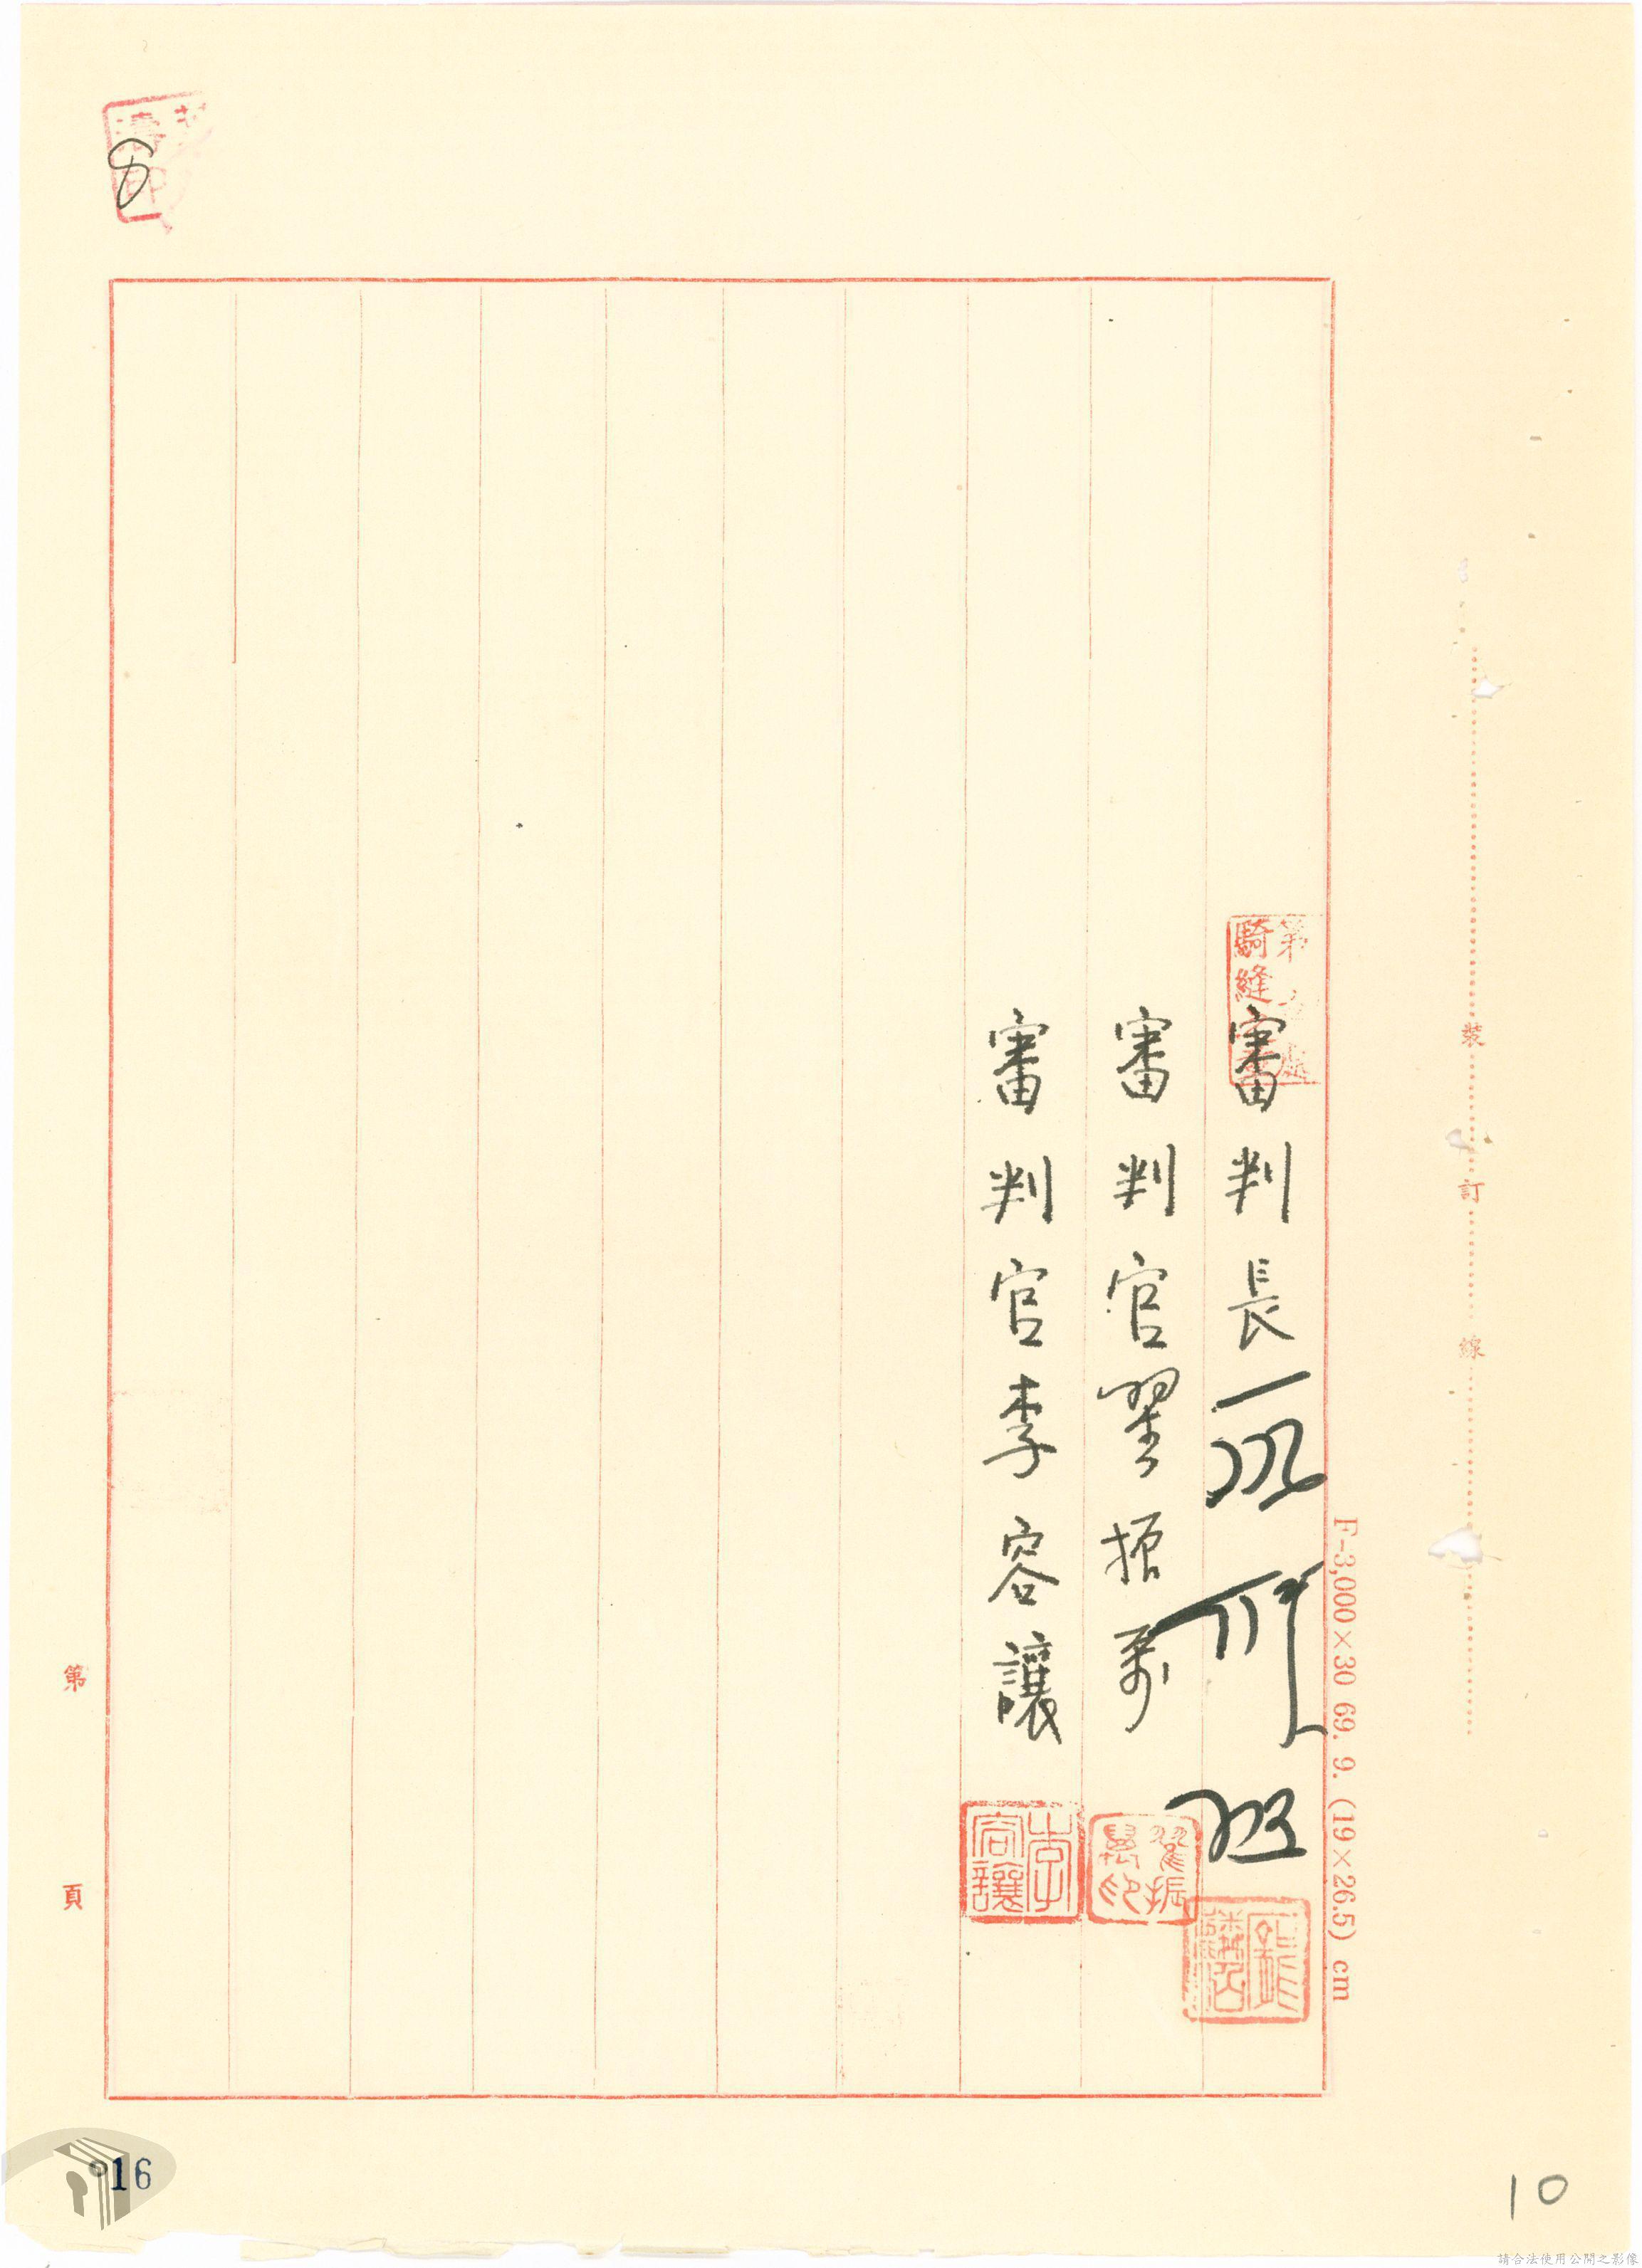 審判長
審判官翟振萬
審判官李容讓
騎縫
第
裝
訂
線
F-3,000×30 69. 9. (19×26.5) cm
翟振萬印
李容讓
第 頁
8
16
10
請合法使用公開之影像